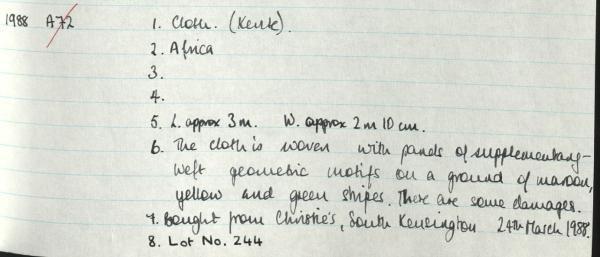 1988 A72 1. Cloth. (Kente).
2. Africa
3.
4.
5. L. approx 3 m. W. approx 2 m 10 cm.
6. The cloth is woven with panels of supplementary-
weft geometric motifs on a ground of maroon,
yellow and green stripes. There are some damages.
7. Bought from Christie's, South Kensington 24th March 1988.
8. Lot No. 244